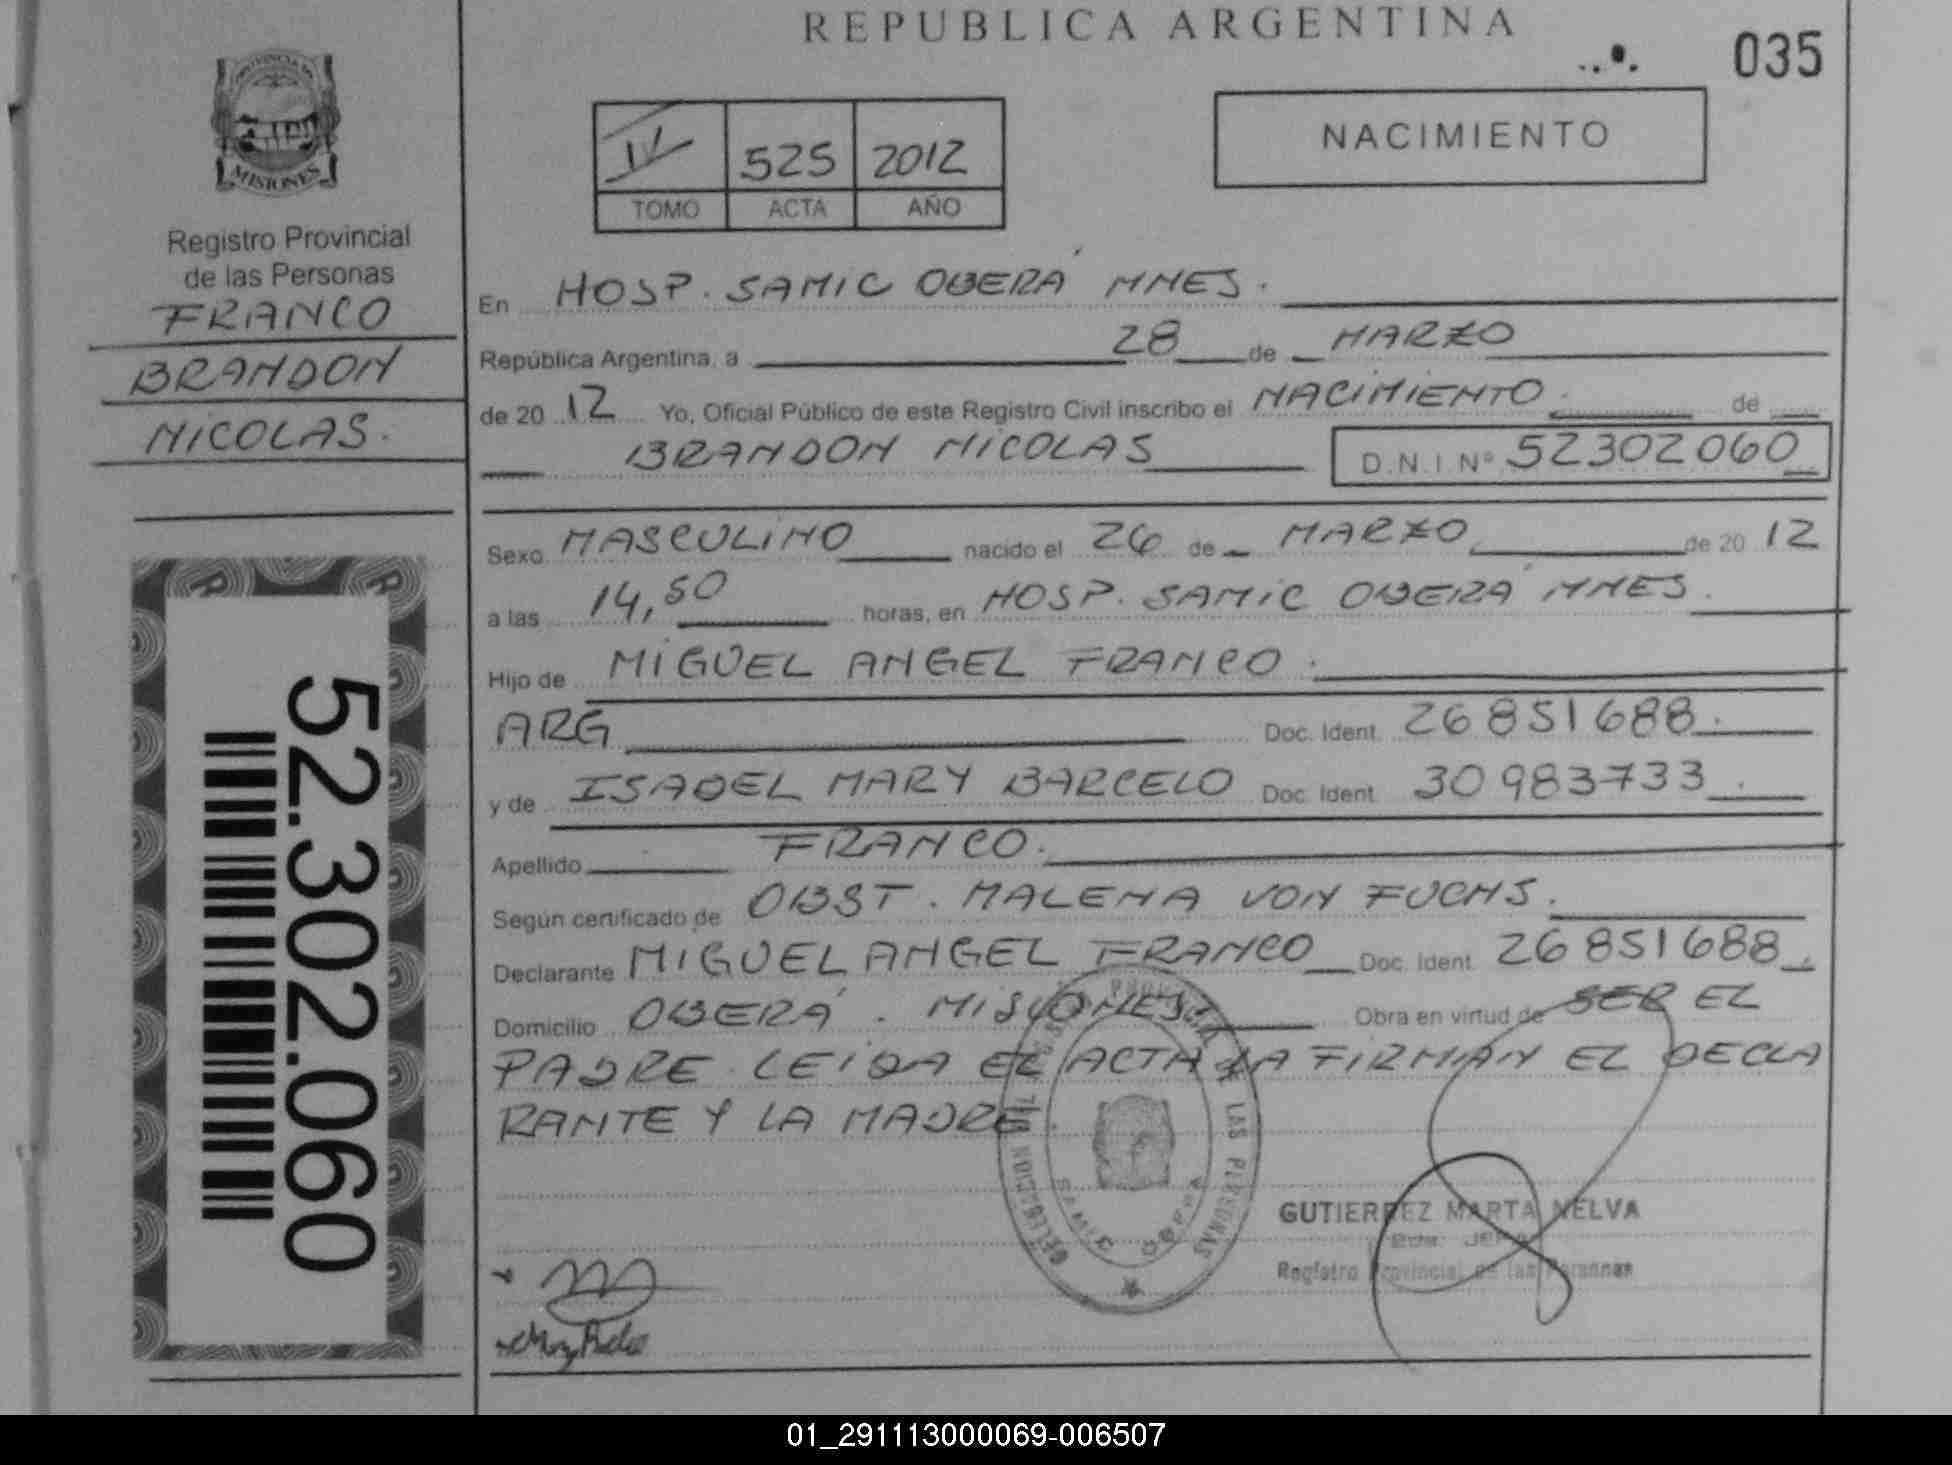 REPUBLICA ARGENTINA
035
PROVINCIA DE
MISIONES
Registro Provincial
de las Personas
FRANCO
BRANDON
NICOLAS.
52.302.060
IV 525 2012
TOMO ACTA AÑO
NACIMIENTO
En HOSP. SAMIC OBERÁ MNES.
República Argentina, a 28 de MARZO
de 20 12 Yo, Oficial Público de este Registro Civil inscribo el NACIMIENTO de
BRANDON NICOLAS D.N.I Nº 52302060
Sexo MASCULINO nacido el 26 de MARZO de 20 12
a las 14,50 horas, en HOSP. SAMIC OBERÁ MNES.
Hijo de MIGUEL ANGEL FRANCO.
ARG Doc. Ident. 26851688.
y de ISABEL MARY BARCELO Doc. Ident. 30983733.
Apellido FRANCO.
Según certificado de OBST. MALENA VON FUCHS.
Declarante MIGUEL ANGEL FRANCO Doc. Ident. 26851688.
Domicilio OBERÁ. MISIONES. Obra en virtud de SER EL
PADRE. LEIDA EL ACTA LA FIRMAN EL DECLA
RANTE Y LA MADRE.
DELEGACION
LAS PERSONAS
SAMIC OBERA
GUTIERREZ MARTA NELVA
Registro Provincial de las Personas
01_291113000069-006507